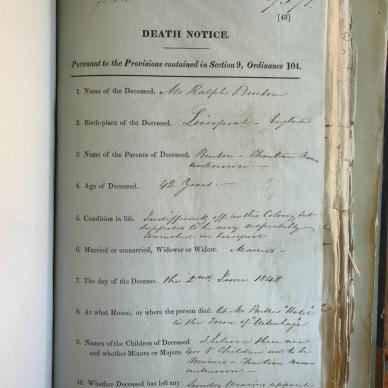 [43]
DEATH NOTICE.
Pursuant to the Provisions contained in Section 9, Ordinance 104.
1. Name of the Deceased. Mr Ralph Burton
2. Birth-place of the Deceased. Liverpool - England
3. Name of the Parents of Deceased. Burton - Christian Names
unknown -
4. Age of Deceased. 42 Years. -
5. Condition in life. Indifferently off in this Colony but
supposed to be very respectably
connected in Liverpool
6. Married or unmarried, Widower or Widow. Married
7. The day of the Decease. the 2nd June 1848
8. At what House, or where the person died. At Mr Parkes "Hotel"
in the Town of "Uitenhage"
9. Names of the Children of Deceased I believe there are
and whether Minors or Majors. 4 or 5 Children and to be
Minors - Christian names
unknown -
10. Whether Deceased has left any Sundry wearing apparel